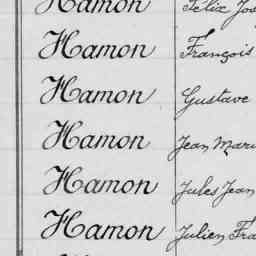 Hamon Félix Jos
Hamon François
Hamon Gustave
Hamon Jean Mari
Hamon Jules Jean
Hamon Julien Fra